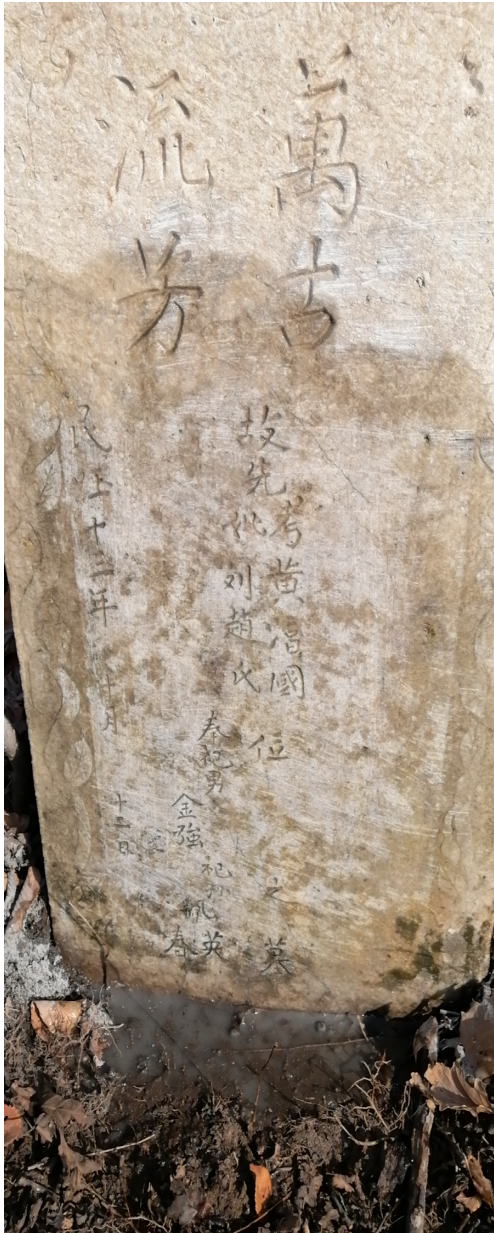 萬古
流芳
故先考黃昌國
妣刘趙氏
位之墓
奉祀男
金強
祀孙
佩英
春
民上十二年
十月
十三日